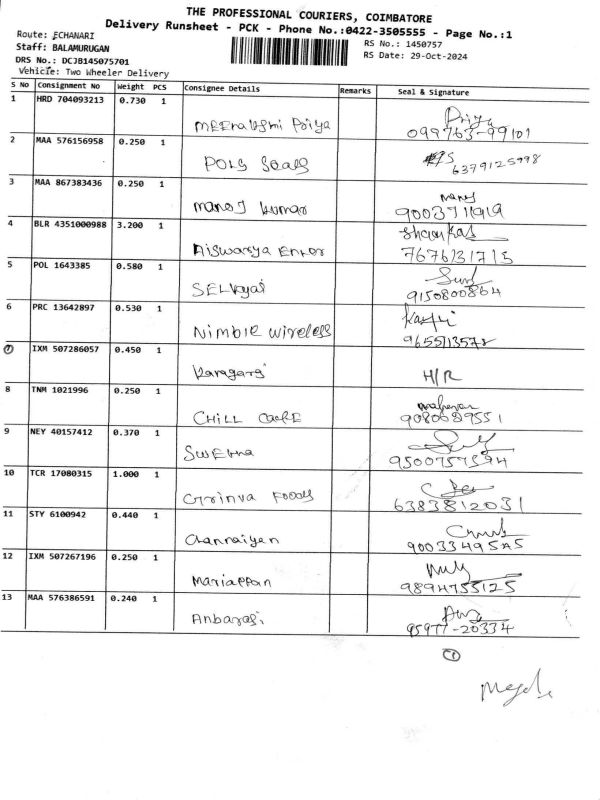 THE PROFESSIONAL COURIERS, COIMBATORE
Delivery Runsheet - PCK - Phone No.:0422-3505555 - Page No.:1
Route: ECHANARI
RS No.: 1450757
Staff: BALAMURUGAN
RS Date: 29-Oct-2024
DRS No.: DCJB145075701
Vehicle: Two Wheeler Delivery
S No Consignment No Weight PCS Consignee Details Remarks Seal & Signature
1 HRD 704093213 0.730 1
Priya
099763-99101
2 MAA 576156958 0.250 1
POLY SEALS
6379125998
3 MAA 867383436 0.250 1
manoj kumar
9003711919
4 BLR 4351000988 3.200 1
Aiswarya Enter
7676131715
5 POL 1643385 0.580 1
9150800864
6 PRC 13642897 0.530 1
Nimble wireless
9655113578
7 IXM 507286057 0.450 1
H/R
8 TNM 1021996 0.250 1
CHILL CAFE
9 NEY 40157412 0.370 1
Swetha
9500757594
10 TCR 17080315 1.000 1
Foods
6383812031
11 STY 6100942 0.440 1
Channaiyan
9003349545
12 IXM 507267196 0.250 1
Mariappan
9894755125
13 MAA 576386591 0.240 1
Anbarasi
95977-20334